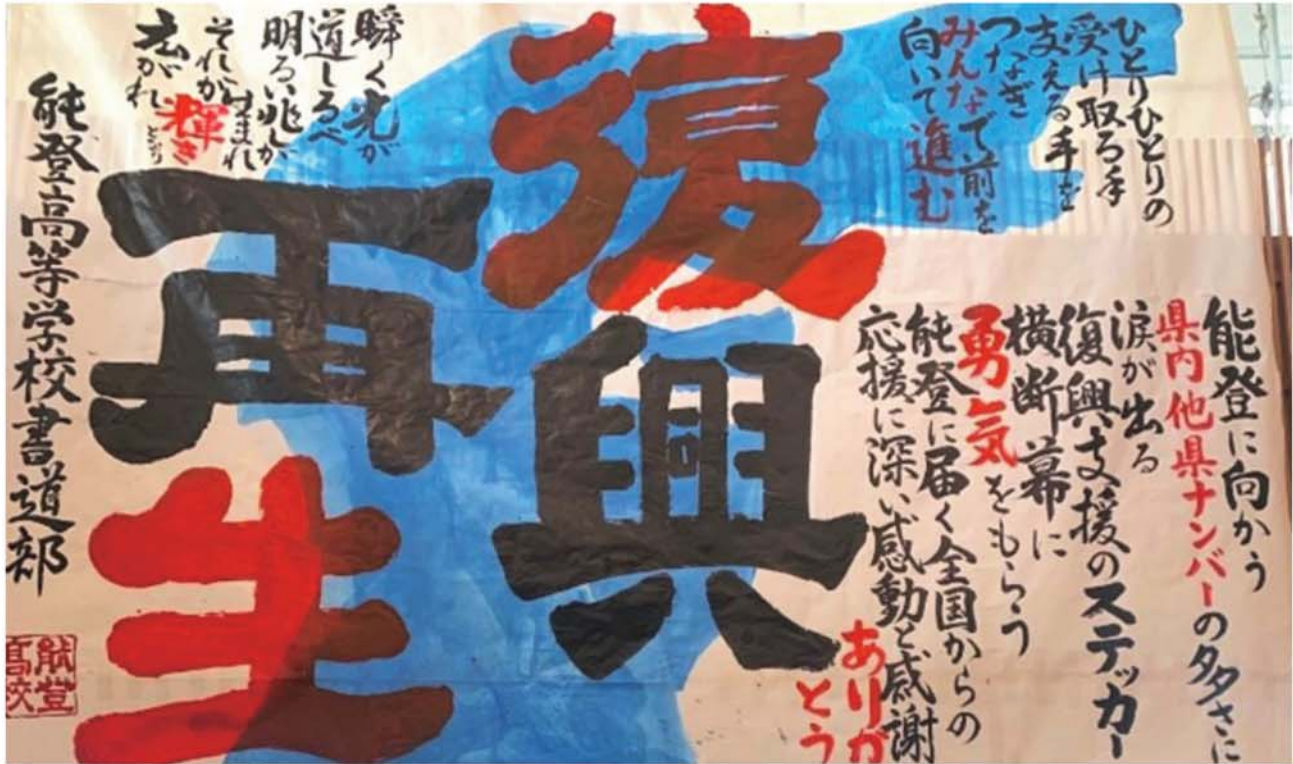 ひとりひとりの
受け取る手
支える手を
つなぎ
みんなで前を
向いて進む
能登に向かう
県内他県ナンバーの多さに
涙が出る
復興支援のステッカー
横断幕に
勇気をもらう
能登に届く全国からの
応援に深い感動と感謝
ありが
とう
復興
再生
瞬く光が
道しるべ
明るい兆が
生まれ
それが輝き
となり
広がれ
能登高等学校書道部
能登
高校